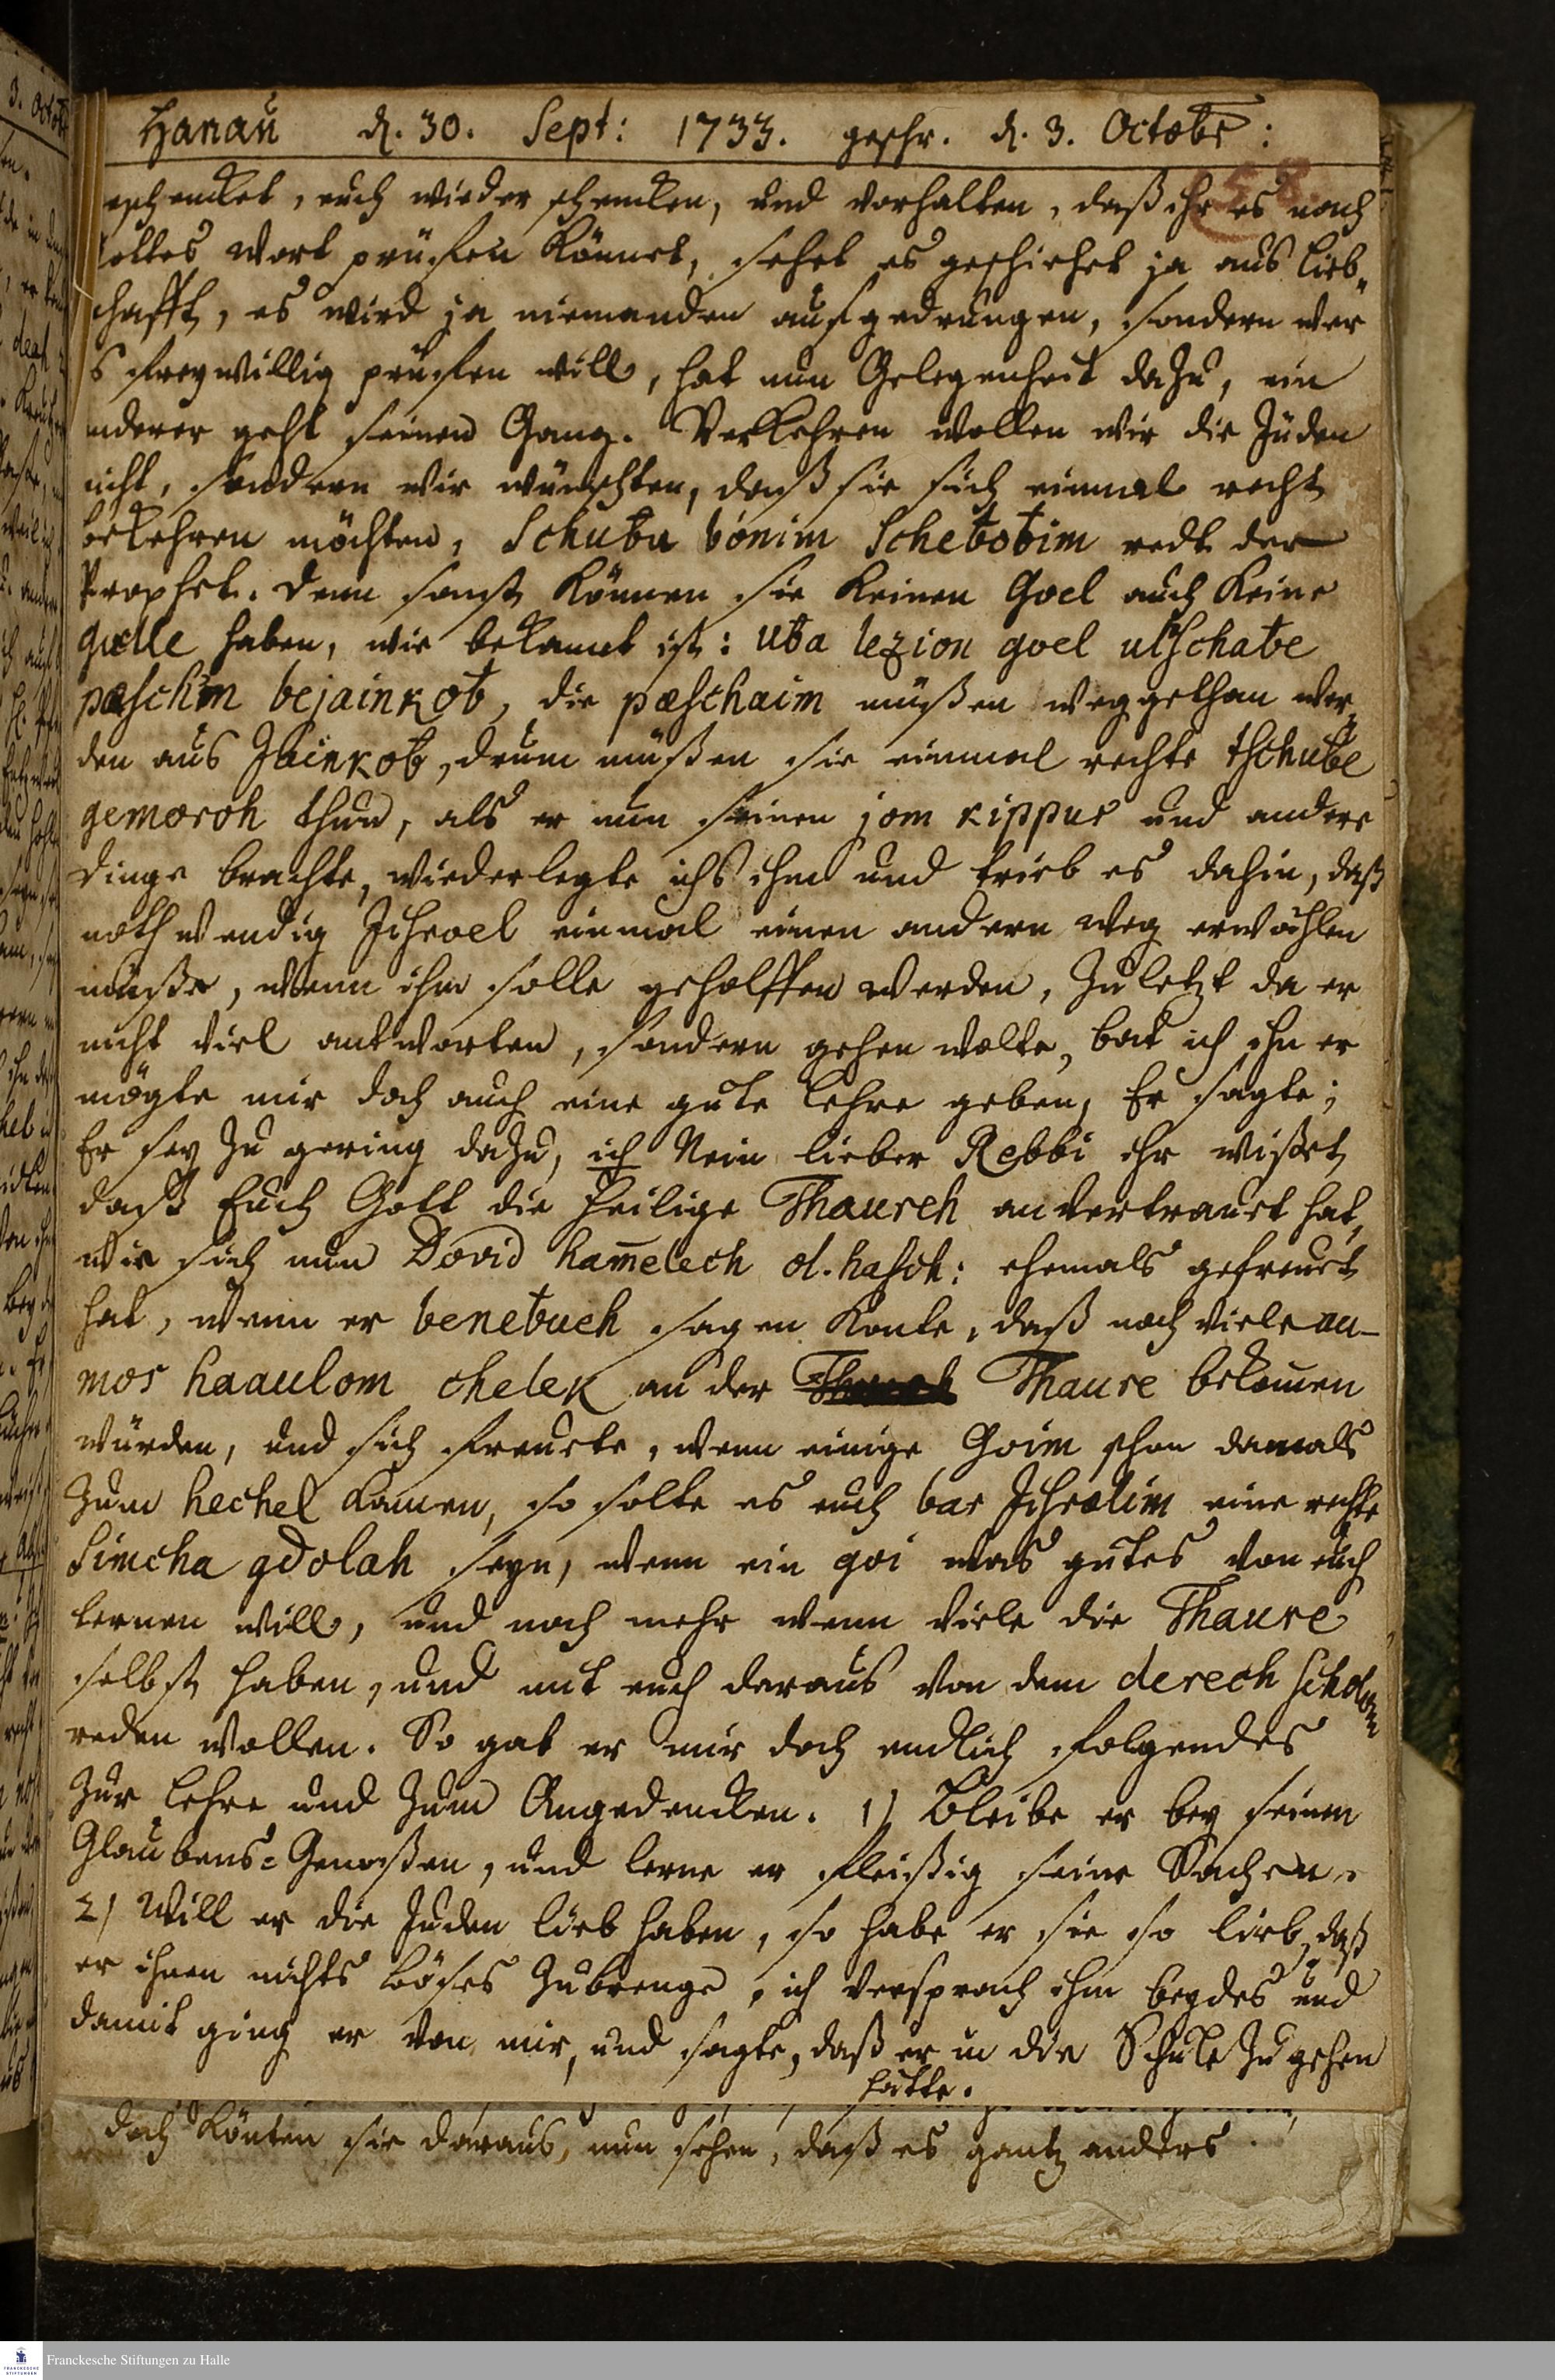 Hanau d. 30. Sept: 1733. geschr. d. 3. Octobr:
eschencket, euch wieder schencken, und vorhalten, daß ihr es nach
ottes Wort prüfen könnet, sehet es geschiehet ja aus Lieb„
chafft, es wird ja niemanden aufgedrungen, sondern wer
s freywillig prüfen will, hat nun Gelegenheit dazu, ein
nderer geht seinen Gang. Verkehren wollen wir die Jüden
nicht, sondern wir wünschten, daß sie sich einmal recht
bekehren möchten, Schubu bonim Schebobim redt der
Prophet. denn sonst können sie keinen Goel auch keine
gælle haben, wie bekannt ist: uba lezion goel ulschabe
pæschim bejainkob, die pæschaim müßen weggethan wer„
den aus Jainkob, drum müßen sie einmal rechte tschube
gemoroh thun, als er nun seinen jom kippur und andere
Dinge brachte, wiederlegte ichs ihm und trieb es dahin, daß
nothwendig Jisroel einmal einen andern Weg erwählen
müße, wenn ihm solle geholffen werden, Zuletzt da er
nicht viel antworten, sondern gehen wolte, bat ich ihn er
mögte mir doch auch eine gute Lehre geben, Er sagte;
Er sey zu gering dazu, ich Nein lieber Rebbi ihr wißet
daß Euch Gott die heilige Thaureh anvertrauet hat,
wie sich nun Dovid hamelech ol. hasch: ehemals gefreuet
hat, wenn er benebuch sagen konte, daß noch viele au-
mos haaulom chelek an der Thaure bekommen
würden, und sich freuete, wenn einige Goim schon damals
zum hechel kamen, so solte es euch bar Jisroelim eine rechte
Simcha gdolah seyn, wenn ein goi was gutes von euch
lernen will, und noch mehr wenn viele die Thaure
selbst haben, und mit euch daraus von dem derech scholom
reden wollen. So gab er mir doch endlich folgendes
zur Lehre und zum Angedencken. 1) Bleibe er bey seinen
Glaubens-Genoßen, und lerne er fleißig seine Sachen.
2) Will er die Juden lieb haben, so habe er sie so lieb, daß
er ihnen nichts böses zubringe, ich versprach ihm beydes und
damit ging er von mir, und sagte, daß er in die Schule zu gehen
hätte.
doch könten sie daraus, nun sehen, daß es gantz anders
Franckesche Stiftungen zu Halle